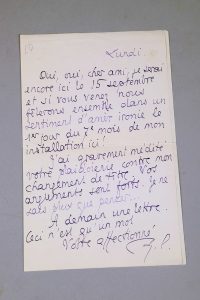 Lundi.
Oui, oui, cher ami, je serai
encore ici le 15 septembre
et si vous venez nous
fêterons ensemble dans un
sentiment d'amer ironie le
1er jour du 7e mois de mon
installation ici!
J'ai gravement médité
votre plaidoirie contre mon
changement de titre. Vos
arguments sont forts. Je ne
sais plus que penser...
A demain une lettre.
Ceci n'est qu'un mot
Votre affectionné